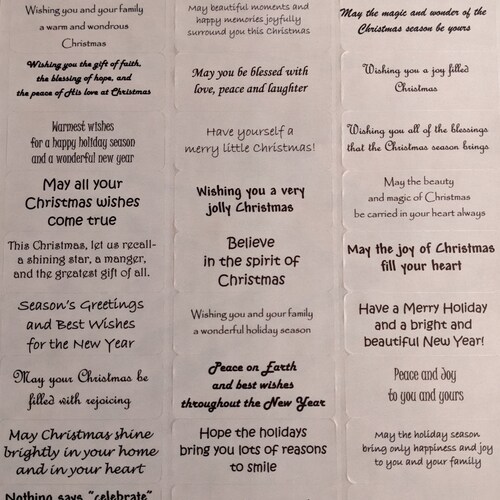 Wishing you and your family
a warm and wondrous
Christmas
Wishing you the gift of faith,
the blessing of hope, and
the peace of His love at Christmas
Warmest wishes
for a happy holiday season
and a wonderful new year
May all your
Christmas wishes
come true
This Christmas, let us recall-
a shining star, a manger,
and the greatest gift of all.
Season's Greetings
and Best Wishes
for the New Year
May your Christmas be
filled with rejoicing
May Christmas shine
brightly in your home
and in your heart
Nothing says "celebrate"
May beautiful moments and
happy memories joyfully
surround you this Christmas
May you be blessed with
love, peace and laughter
Have yourself a
merry little Christmas!
Wishing you a very
jolly Christmas
Believe
in the spirit of
Christmas
Wishing you and your family
a wonderful holiday season
Peace on Earth
and best wishes
throughout the New Year
Hope the holidays
bring you lots of reasons
to smile
May the magic and wonder of the
Christmas season be yours
Wishing you a joy filled
Christmas
Wishing you all of the blessings
that the Christmas season brings
May the beauty
and magic of Christmas
be carried in your heart always
May the joy of Christmas
fill your heart
Have a Merry Holiday
and a bright and
beautiful New Year!
Peace and Joy
to you and yours
May the holiday season
bring only happiness and joy
to you and your family